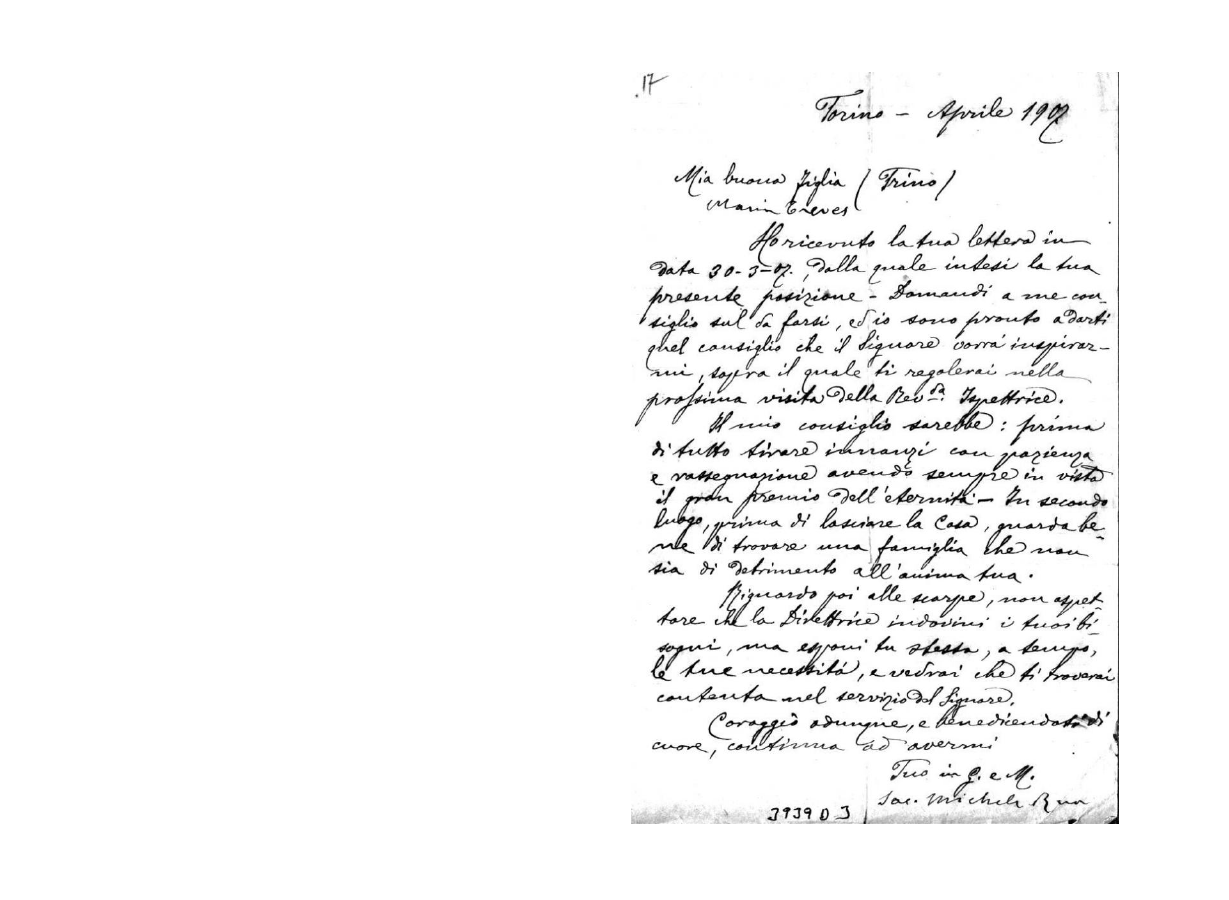 17
Torino - Aprile 1907
Mia buona figlia (Trino)
Maria Treves
Ho ricevuto la tua lettera in
data 30-3-07., dalla quale intesi la tua
presente posizione - Domandi a me con-
siglio sul da farsi, ed io sono pronto a darti
quel consiglio che il Signore vorrà inspirar-
mi, sopra il quale ti regolerai nella
prossima visita della Rev.da Ispettrice.
Il mio consiglio sarebbe: prima
di tutto tirare innanzi con pazienza
e rassegnazione avendo sempre in vista
il gran premio dell'eternità - In secondo
luogo, prima di lasciare la Casa, guarda be-
ne di trovare una famiglia che non
sia di detrimento all'anima tua.
Riguardo poi alle scarpe, non aspet-
tare che la Direttrice indovini i tuoi bi-
sogni, ma esponi tu stessa, a tempo,
le tue necessità, e vedrai che ti troverai
contenta nel servizio del Signore.
Coraggio adunque, e benedicendoti di
cuore, continua ad avermi
Tuo in G. e M.
Sac. Michele Rua
3939 D 3